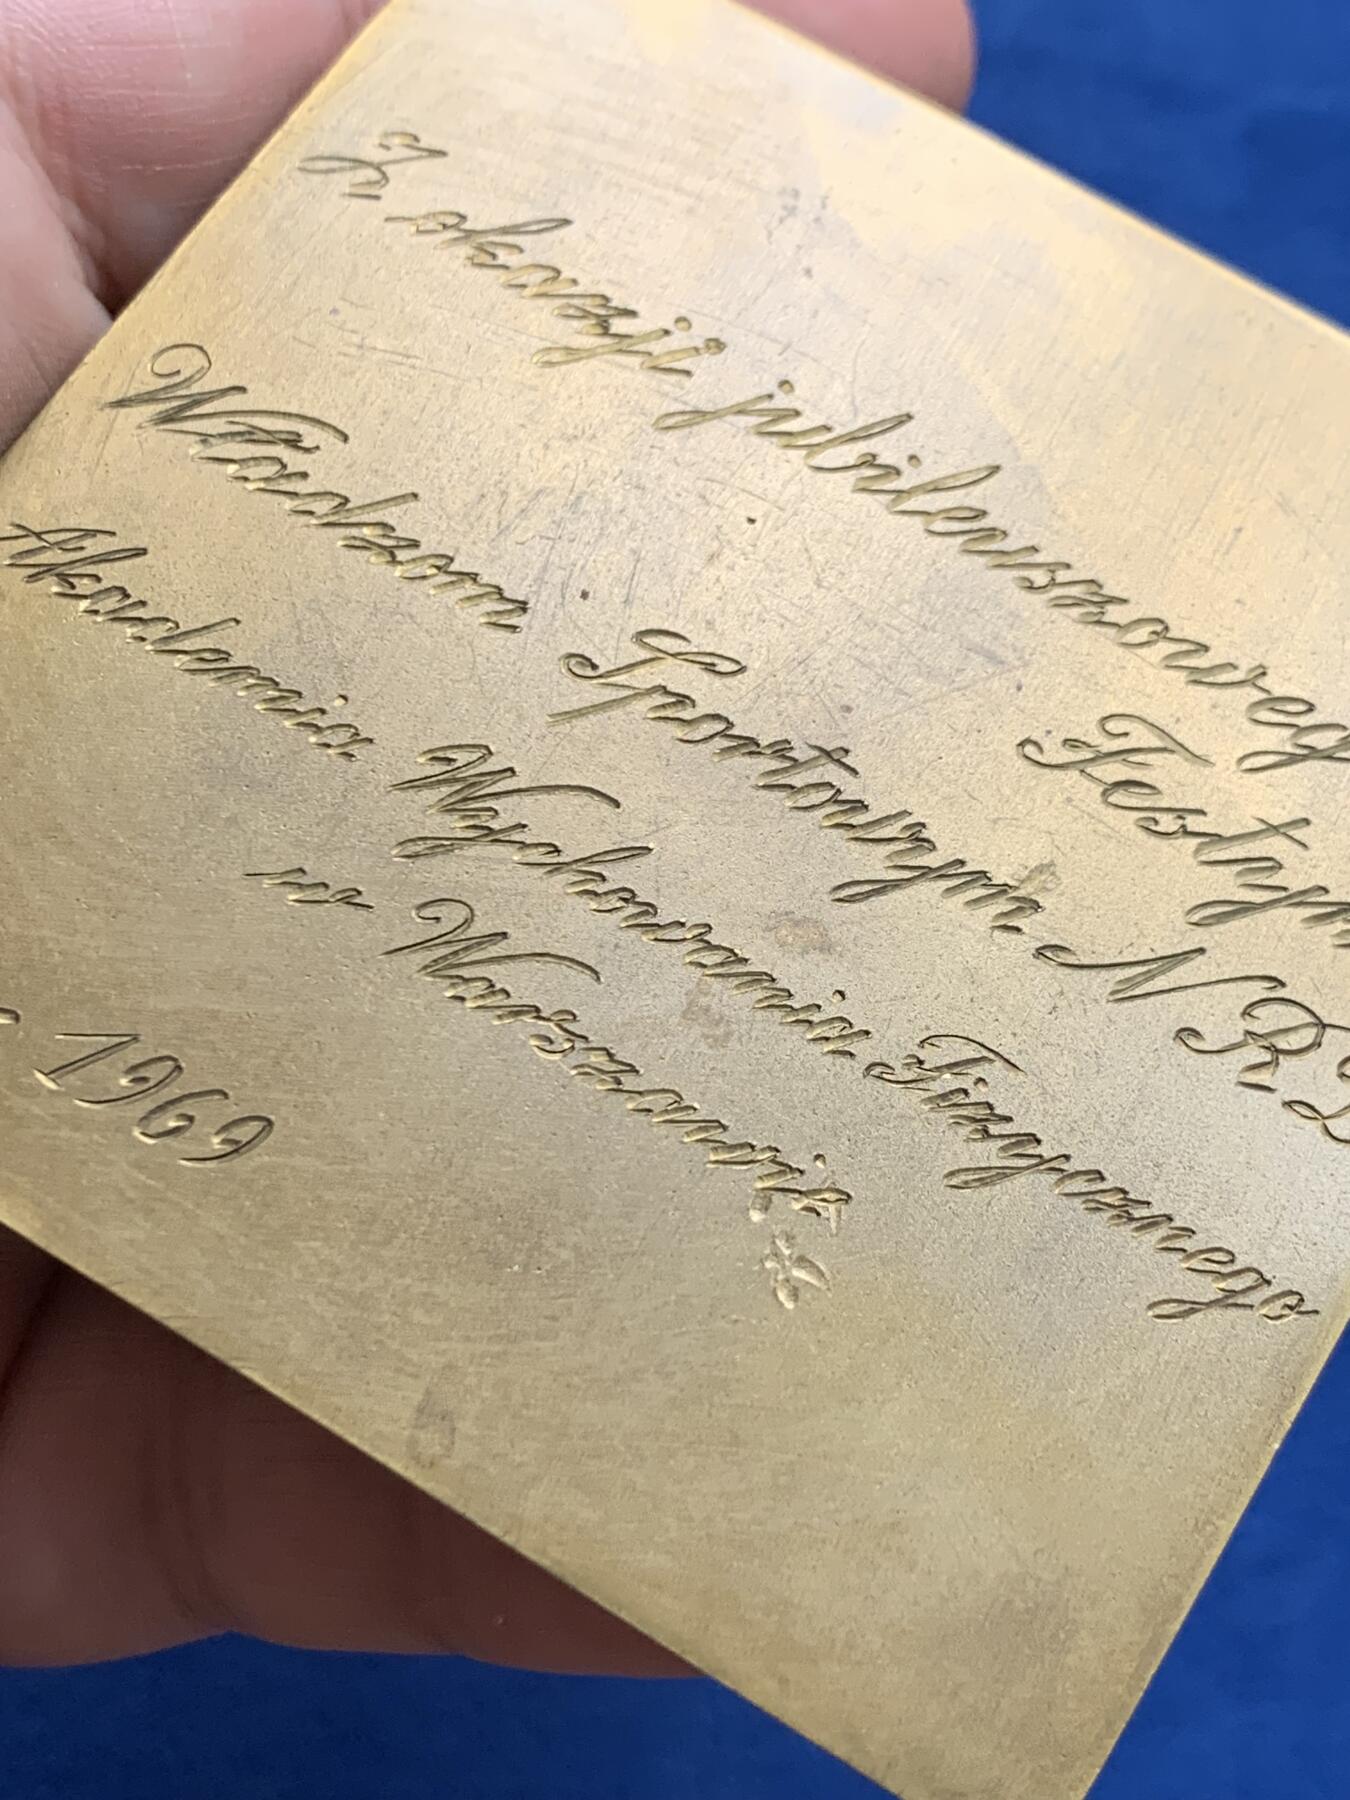 Z okazji jubileuszoweg
Festyn
Władzom Sportowym NRD
Akademia Wychowania Fizycznego
w Warszawie
. 1969